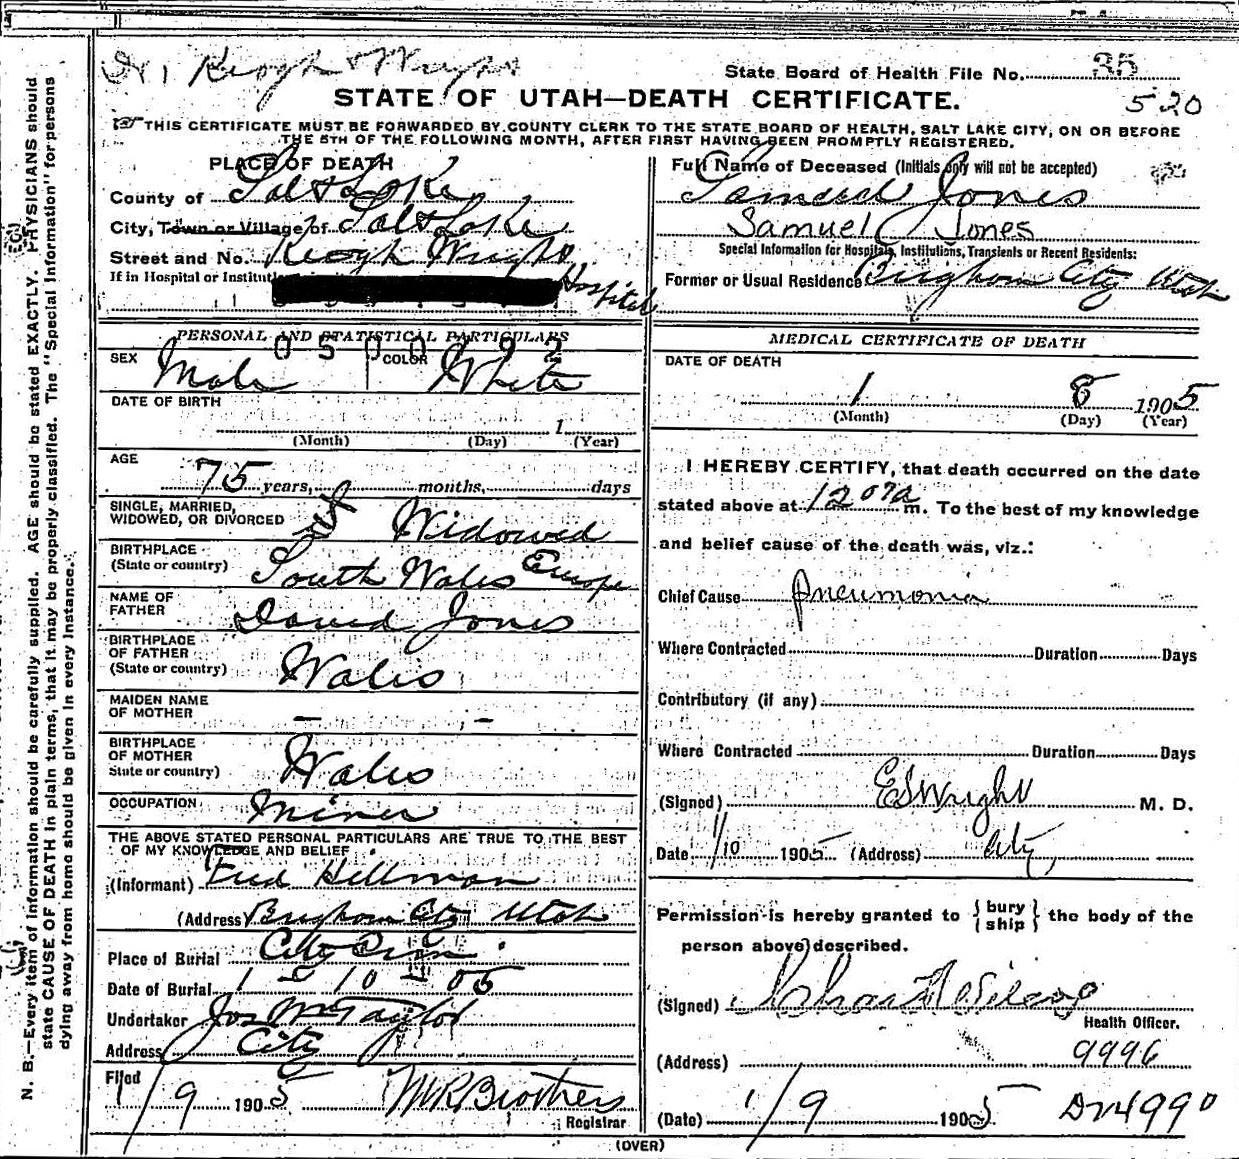 Dr. Keogh & Wright
State Board of Health File No. 35
STATE OF UTAH—DEATH CERTIFICATE.
520
THIS CERTIFICATE MUST BE FORWARDED BY COUNTY CLERK TO THE STATE BOARD OF HEALTH, SALT LAKE CITY, ON OR BEFORE
THE 5TH OF THE FOLLOWING MONTH, AFTER FIRST HAVING BEEN PROMPTLY REGISTERED.
PLACE OF DEATH
County of Salt Lake
City, Town or Village of Salt Lake
Street and No. Keogh Wright
If in Hospital or Instituti Hospital
Full Name of Deceased (Initials only will not be accepted)
Samuel Jones
Samuel Jones
Special Information for Hospitals, Institutions, Transients or Recent Residents:
Former or Usual Residence Brigham City Utah
PERSONAL AND STATISTICAL PARTICULARS
SEX Male COLOR White
DATE OF BIRTH
1
(Month) (Day) (Year)
AGE
75 years, months, days
SINGLE, MARRIED,
WIDOWED, OR DIVORCED Widowed
BIRTHPLACE
(State or country) South Wales Europe
NAME OF
FATHER David Jones
BIRTHPLACE
OF FATHER
(State or country) Wales
MAIDEN NAME
OF MOTHER – –
BIRTHPLACE
OF MOTHER
State or country) Wales
OCCUPATION Miner
THE ABOVE STATED PERSONAL PARTICULARS ARE TRUE TO THE BEST
OF MY KNOWLEDGE AND BELIEF
(Informant) Fred Hillman
(Address Brigham City Utah
Place of Burial City
Date of Burial 1 - 10 - 05
Undertaker Jos Wm Taylor
Address City
Filed
1/9 1905 M R Brothers
Registrar
MEDICAL CERTIFICATE OF DEATH
DATE OF DEATH
1 8 1905
(Month) (Day) (Year)
I HEREBY CERTIFY, that death occurred on the date
stated above at 1207a m. To the best of my knowledge
and belief cause of the death was, viz.:
Chief Cause pneumonia
Where Contracted Duration Days
Contributory (if any)
Where Contracted Duration Days
(Signed) E S Wright M. D.
Date 1/10 1905 (Address) City,
Permission is hereby granted to { bury ship } the body of the
person above described.
(Signed)
Health Officer.
(Address) 9996
(Date) 1/9 1905
(OVER)
N. B.—Every item of information should be carefully supplied. AGE should be stated EXACTLY. PHYSICIANS should
state CAUSE OF DEATH in plain terms, that it may be properly classified. The "Special Information" for persons
dying away from home should be given in every instance.